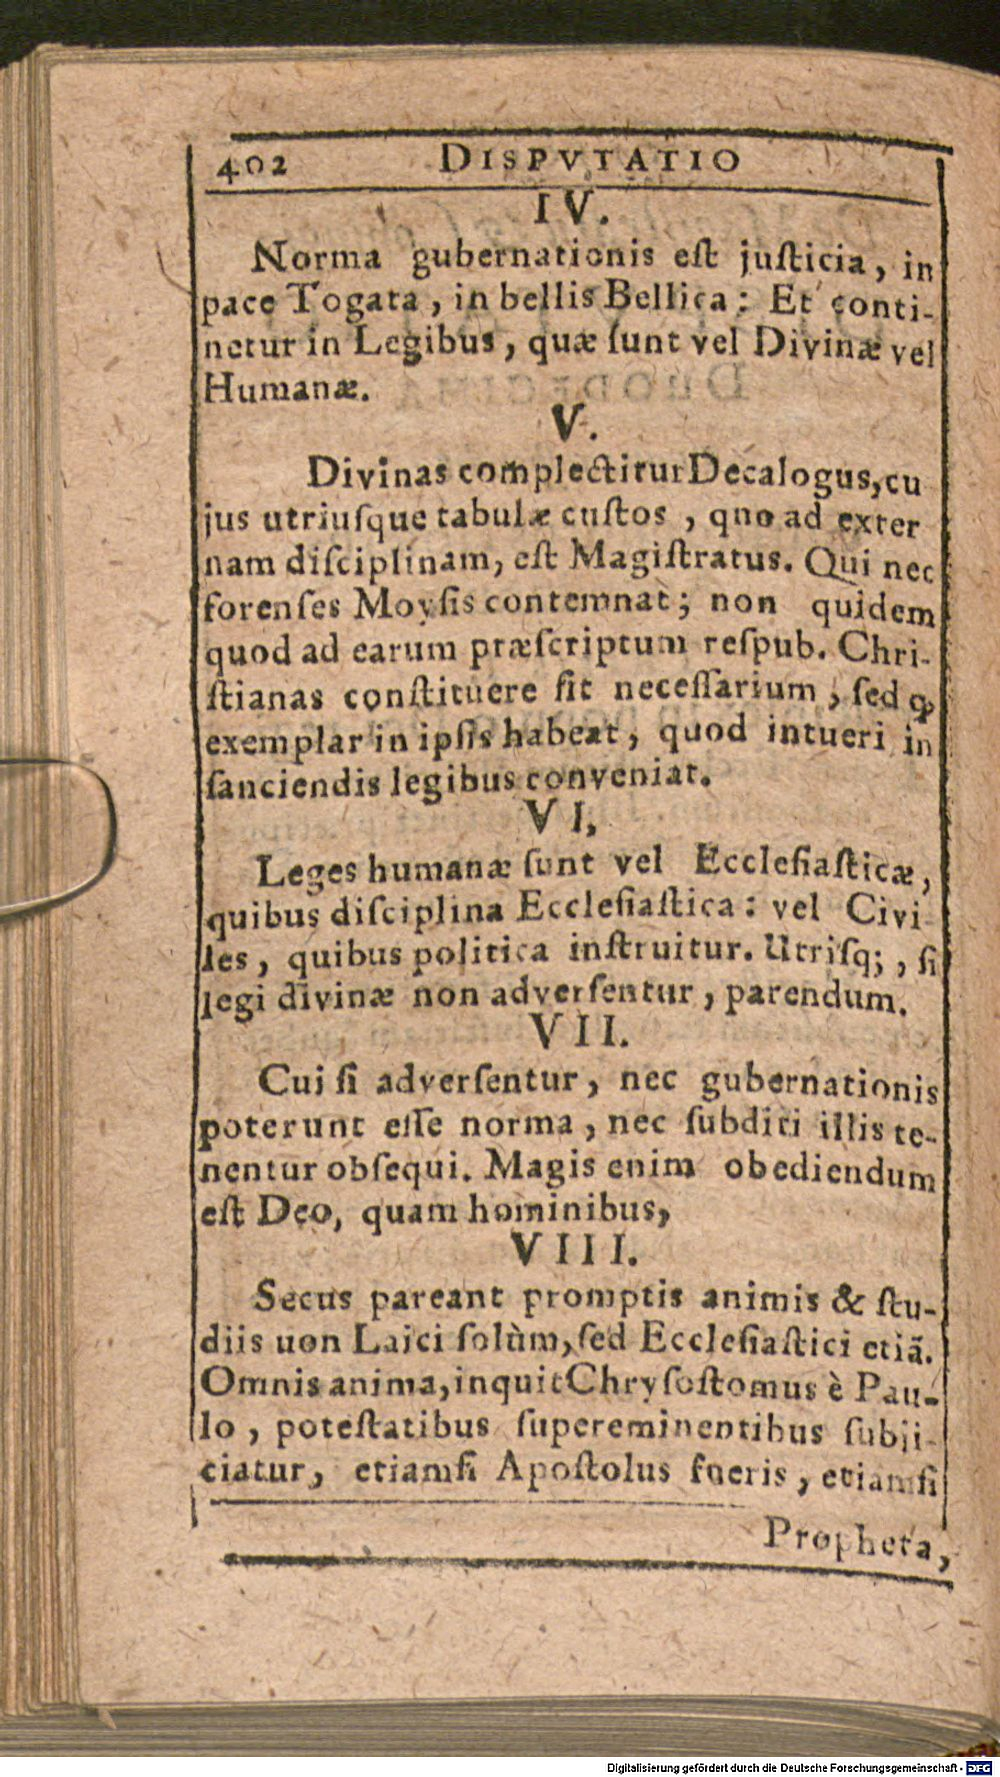 402 DISPVTATIO
IV.
Norma gubernationis eſt juſticia, in
pace Togata, in bellis Bellica: Et conti-
netur in Legibus, quæ ſunt vel Divinæ vel
Humanæ.
V.
Divinas complectitur Decalogus, cu
jus utriuſque tabulæ cuſtos, quo ad exter
nam diſciplinam, eſt Magiſtratus. Qui nec
forenſes Moyſis contemnat; non quidem
quod ad earum præſcriptum reſpub. Chri-
ſtianas conſtituere ſit neceſſarium, ſed ꝙ
exemplar in ipſis habeat, quod intueri in
ſanciendis legibus conveniat.
VI,
Leges humanæ ſunt vel Eccleſiaſticæ,
quibus diſciplina Eccleſiaſtica: vel Civi-
les, quibus politica inſtruitur. Utriſq;, ſi
legi divinæ non adverſentur, parendum.
VII.
Cui ſi adverſentur, nec gubernationis
poterunt eſſe norma, nec ſubditi illis te-
nentur obſequi. Magis enim obediendum
eſt Deo, quam hominibus,
VIII.
Secus pareant promptis animis & ſtu-
diis uon Laici ſolùm, ſed Eccleſiaſtici etiã.
Omnis anima, inquit Chryſoſtomus è Pau-
lo, poteſtatibus ſupereminentibus ſubji-
ciatur, etiamſi Apoſtolus fueris, etiamſi
Propheta,
Digitalisierung gefördert durch die Deutsche Forschungsgemeinschaft - DFG